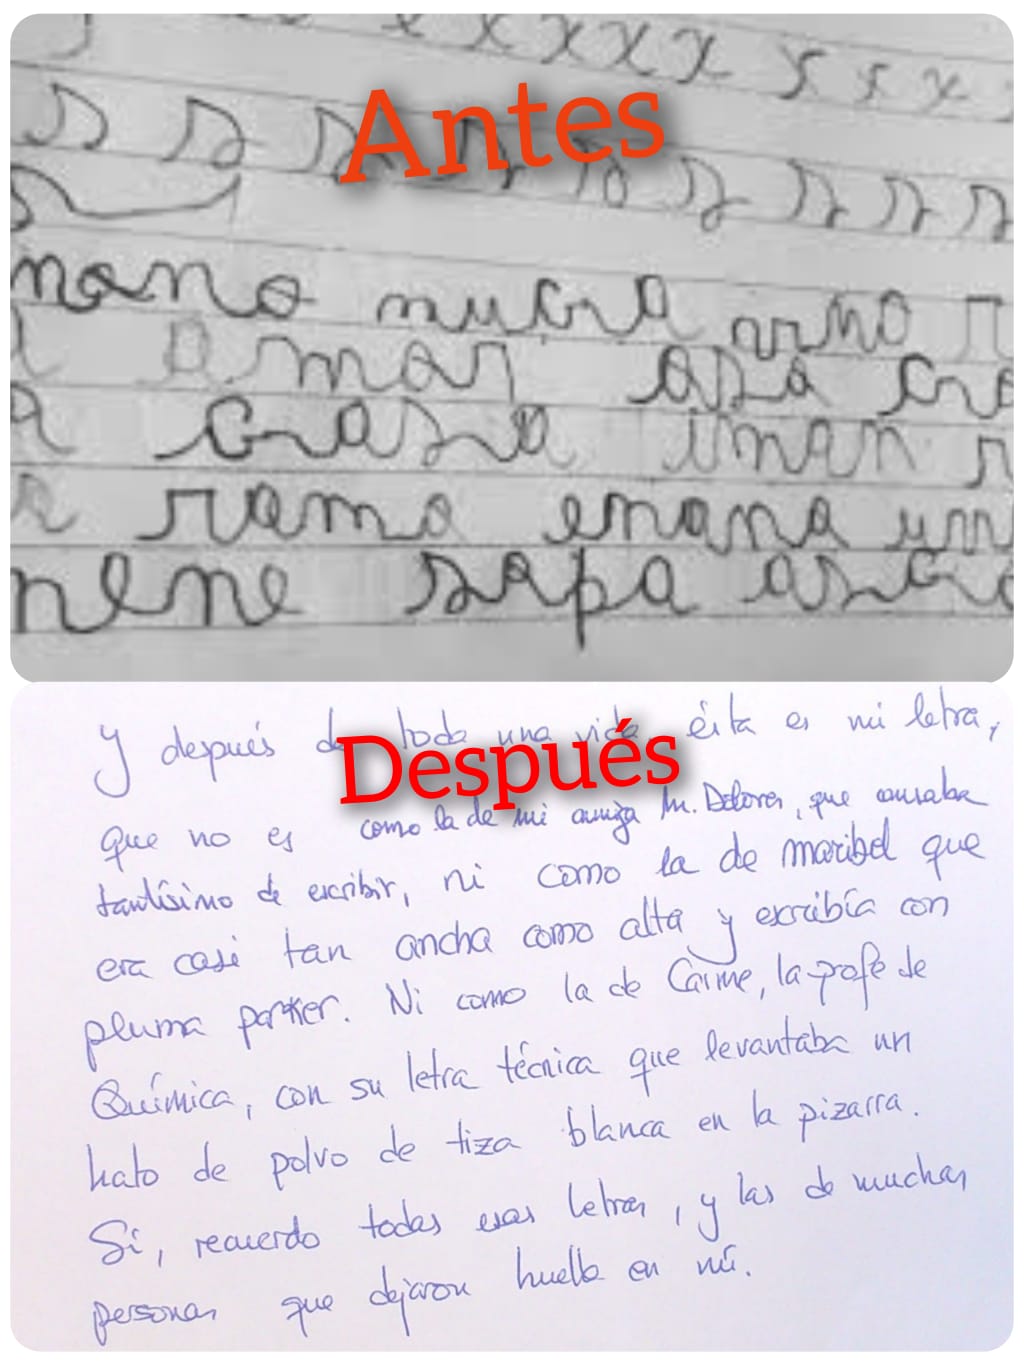 x x x x x x x x
Antes
mano mucra
amar asa
crasa unan
rama enana
nene sapa
Después
y después de toda una vida, ésta es mi letra,
que no es como la de mi amiga M. Dolores, que cansaba
tantísimo de escribir, ni como la de maribel que
era casi tan ancha como alta y escribía con
pluma parker. Ni como la de Carme, la profe de
Química, con su letra técnica que levantaba un
hato de polvo de tiza blanca en la pizarra.
Sí, recuerdo todas esas letras, y las de muchas
personas que dejaron huella en mí.